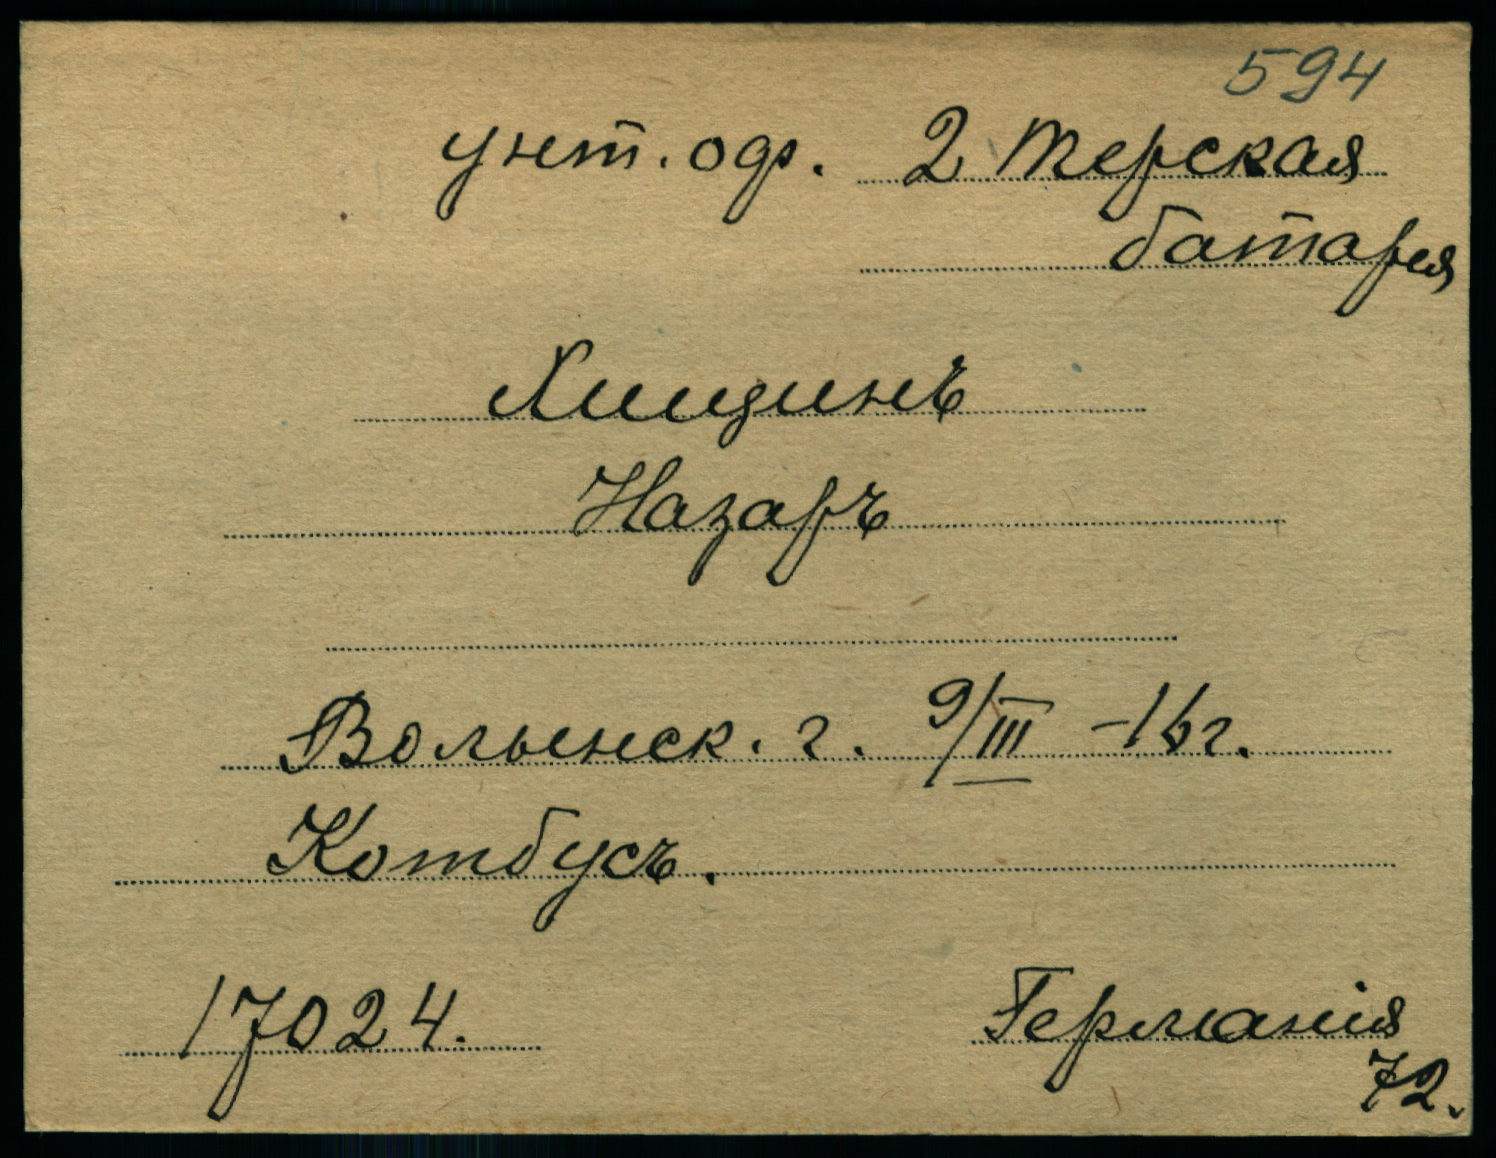 594
унт. оф. 2 Терская
батарея
Хищинъ
Назаръ
Волынск. г. 9/III -16 г.
Котбусъ.
17024. Германія
72.